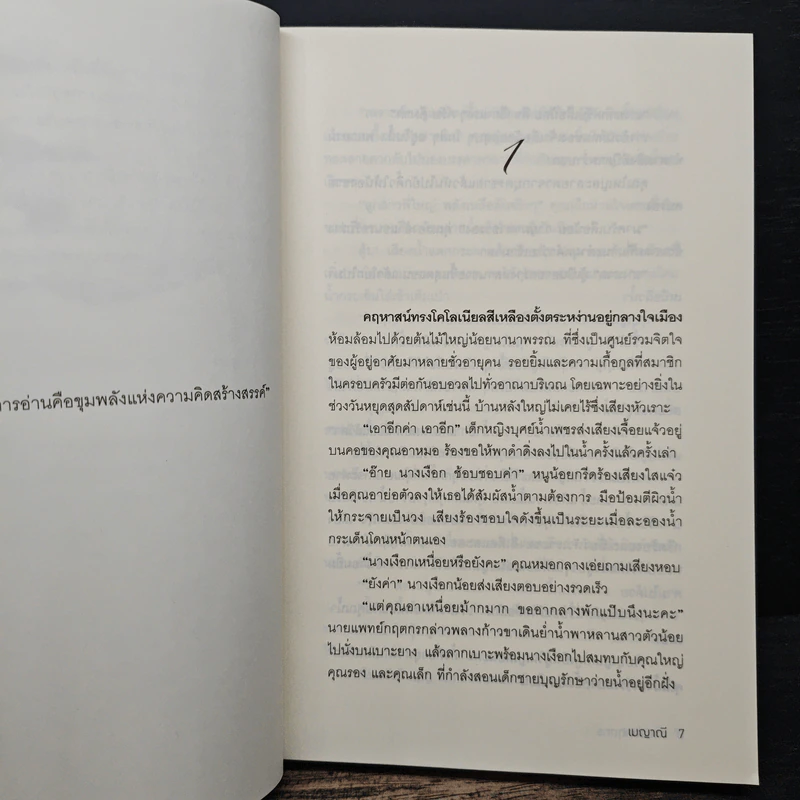 การอ่านคือขุมพลังแห่งความคิดสร้างสรรค์"
1
คฤหาสน์ทรงโคโลเนียลสีเหลืองตั้งตระหง่านอยู่กลางใจเมือง
ห้อมล้อมไปด้วยต้นไม้ใหญ่น้อยนานาพรรณ ที่ซึ่งเป็นศูนย์รวมจิตใจ
ของผู้อยู่อาศัยมาหลายชั่วอายุคน รอยยิ้มและความเกื้อกูลที่สมาชิก
ในครอบครัวมีต่อกันอบอวลไปทั่วอาณาบริเวณ โดยเฉพาะอย่างยิ่งใน
ช่วงวันหยุดสุดสัปดาห์เช่นนี้ บ้านหลังใหญ่ไม่เคยไร้ซึ่งเสียงหัวเราะ
"เอาอีกค่า เอาอีก" เด็กหญิงบุศย์น้ำเพชรส่งเสียงเจื้อยแจ้วอยู่
บนคอของคุณอาหมอ ร้องขอให้พาดำดิ่งลงไปในน้ำครั้งแล้วครั้งเล่า
"อ๊าย นางเงือก ช้อบชอบค่า" หนูน้อยกรีดร้องเสียงใสแจ๋ว
เมื่อคุณอาย่อตัวลงให้เธอได้สัมผัสน้ำตามต้องการ มือป้อมตีผิวน้ำ
ให้กระจายเป็นวง เสียงร้องชอบใจดังขึ้นเป็นระยะเมื่อละอองน้ำ
กระเด็นโดนหน้าตนเอง
"นางเงือกเหนื่อยหรือยังคะ" คุณหมอกลางเอ่ยถามเสียงหอบ
"ยังค่า" นางเงือกน้อยส่งเสียงตอบอย่างรวดเร็ว
"แต่คุณอาเหนื่อยม้ากมาก ขออากลางพักแป๊บนึงนะคะ"
นายแพทย์กฤตกรกล่าวพลางก้าวขาเดินย่ำน้ำพาหลานสาวตัวน้อย
ไปนั่งบนเบาะยาง แล้วลากเบาะพร้อมนางเงือกไปสมทบกับคุณใหญ่
คุณรอง และคุณเล็ก ที่กำลังสอนเด็กชายบุญรักษาว่ายน้ำอยู่อีกฝั่ง
เมญาณี 7